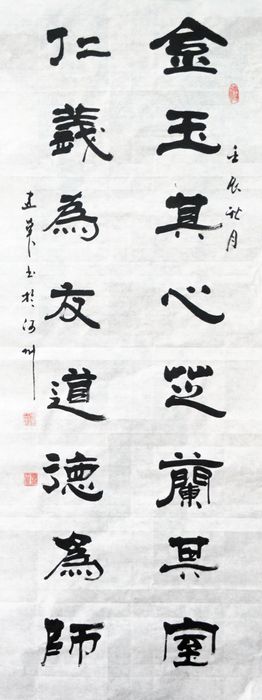 金玉其心芝蘭其室
壬辰秋月
仁義為友道德為師
建华书於河州